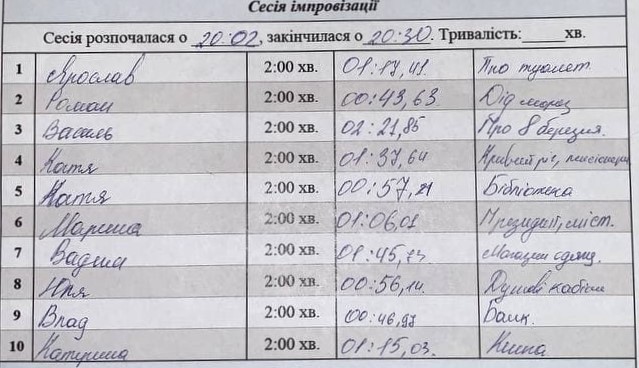 Сесія імпровізації
Сесія розпочалася о 20:02, закінчилася о 20:30. Тривалість:_____хв.
1 Ярослав 2:00 хв. 01:17,41 Про туалет.
2 Роман 2:00 хв. 00:43,63 Дід мороз
3 Василь 2:00 хв. 02:21,85 Про 8 березня.
4 Катя 2:00 хв. 01:37,64 Кривий ріг, пенсіонери
5 Катя 2:00 хв. 00:57,21 Бібліотека
6 Марина 2:00 хв. 01:06,01 Президент, міст.
7 Вадим 2:00 хв. 01:45,73 Магазин одягу.
8 Юля 2:00 хв. 00:56,14. Душові кабіни
9 Влад 2:00 хв. 00:46,97 Банк.
10 Катерина 2:00 хв. 01:15,03.